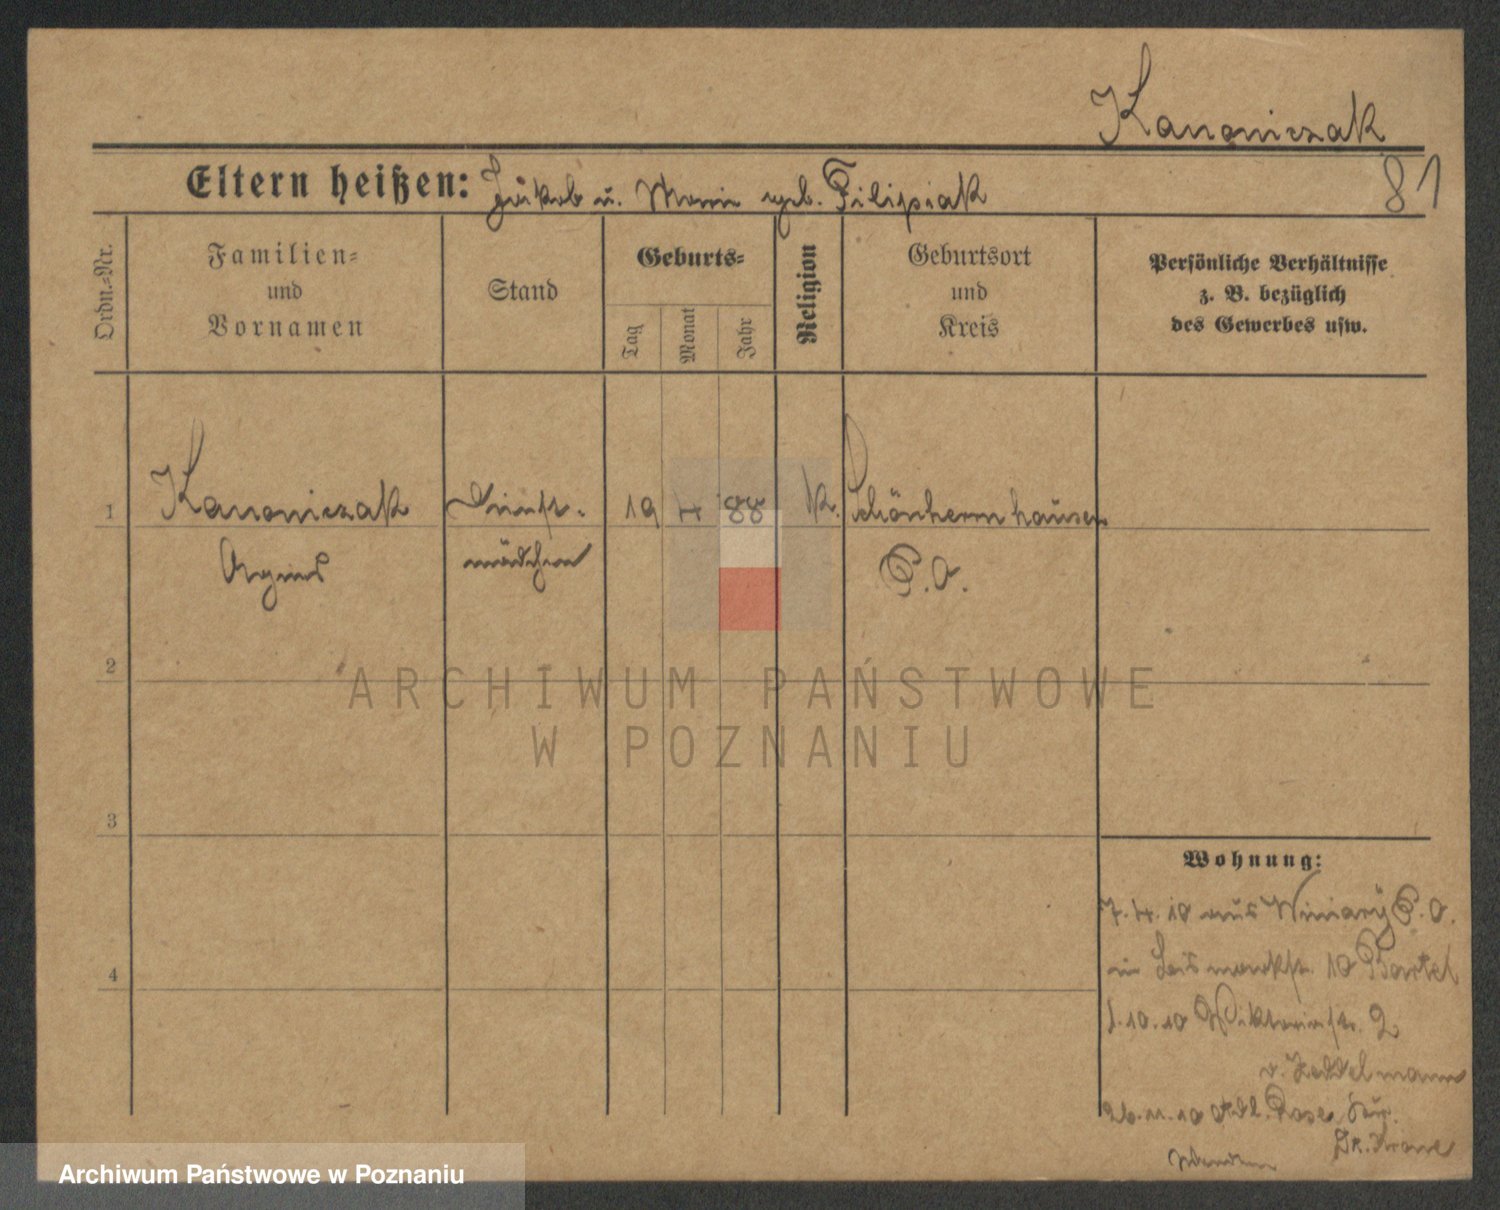 Kanoniczak
Eltern heißen: Jakob u. Marie geb. Filipiak
81
Ordn.=Nr.
Familien=
und
Vornamen
Stand
Geburts=
Tag
Monat
Jahr
Religion
Geburtsort
und
Kreis
Persönliche Verhältnisse
z. B. bezüglich
des Gewerbes usw.
1
Kanoniczak
Agnes
Dienst-
mädchen
19 4 88
K.
Schönherrnhausen
P. O.
2
3
4
Wohnung:
7. 4. 10 aus Winiary P. O.
in Bismarckstr. 10 Bartel
1. 10. 10 Viktoriastr. 2
v. Zeddelmann
26. 11. 10
ARCHIWUM PAŃSTWOWE
W POZNANIU
Archiwum Państwowe w Poznaniu